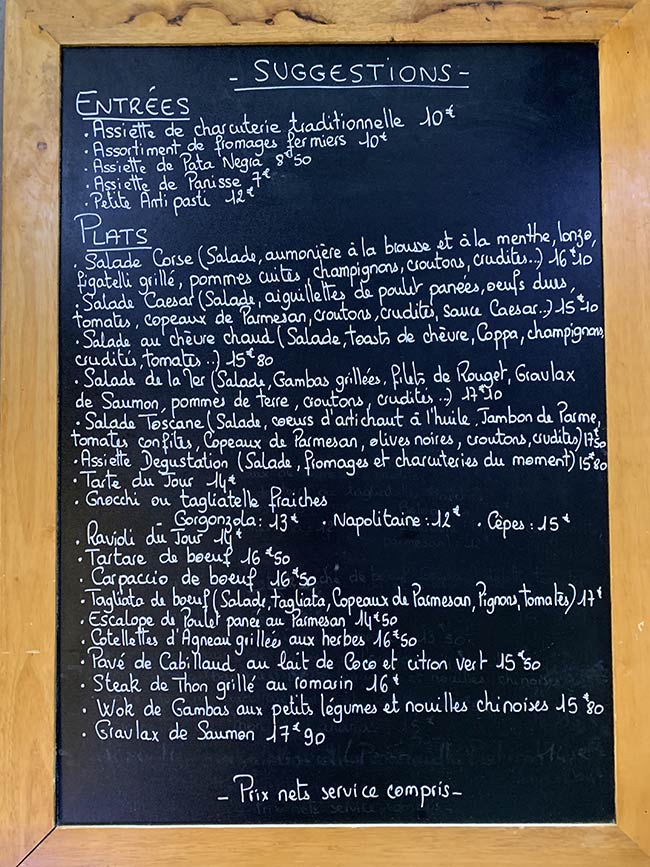 - SUGGESTIONS -
ENTRÉES
. Assiette de charcuterie traditionnelle 10€
. Assortiment de fromages fermiers 10€
. Assiette de Pata Negra 8€50
. Assiette de Panisse 7€
. Petite Anti pasti 12€
PLATS
. Salade Corse (Salade, aumonière à la brousse et à la menthe, lonzo,
figatelli grillé, pommes cuites, champignons, croutons, crudites..) 16€10
. Salade Caesar (Salade, aiguillettes de poulet panées, oeufs durs,
tomates, copeaux de Parmesan, croutons, crudités, sauce Caesar..) 15€10
. Salade au chèvre chaud (Salade, toasts de chèvre, Coppa, champignons,
crudités, tomates ..) 15€80
. Salade de la Mer (Salade, Gambas grillées, filets de Rouget, Gravlax
de Saumon, pommes de terre, croutons, crudites ..) 17€10
. Salade Toscane (Salade, coeurs d'artichaut à l'huile, Jambon de Parme,
tomates confites, Copeaux de Parmesan, olives noires, croutons, crudites) 17€50
. Assiette Degustation (Salade, fromages et charcuteries du moment) 15€80
. Tarte du Jour 14€
. Gnocchi ou tagliatelle fraiches
- Gorgonzola : 13€ . Napolitaine : 12€ . Cèpes : 15€
. Ravioli du Jour 14€
. Tartare de boeuf 16€50
. Carpaccio de boeuf 16€50
. Tagliata de boeuf (Salade, tagliata, Copeaux de Parmesan, Pignons, tomates) 17€
. Escalope de Poulet panée au Parmesan 14€50
. Cotellettes d'Agneau grillées aux herbes 16€50
. Pavé de Cabillaud au lait de Coco et citron vert 15€50
. Steak de Thon grillé au romarin 16€
. Wok de Gambas aux petits légumes et nouilles chinoises 15€80
. Gravlax de Saumon 17€90
- Prix nets service compris -